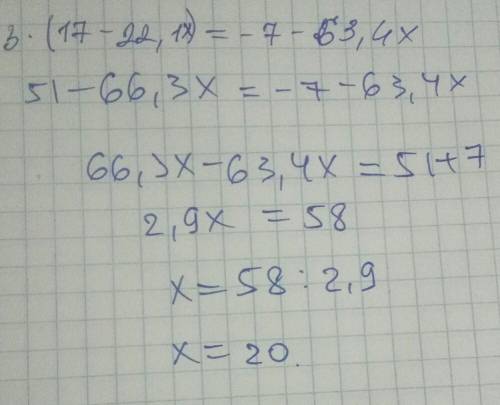 3·(17-22,1x)=-7-63,4x
51-66,3x=-7-63,4x
66,3x-63,4x=51+7
2,9x=58
x=58:2,9
x=20.